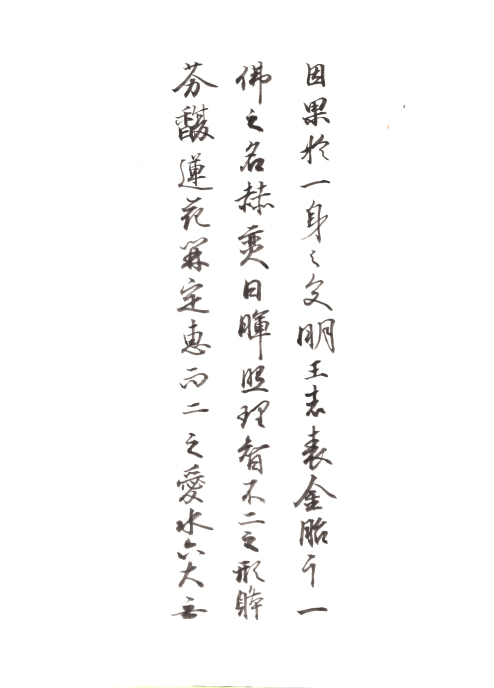 因果於一身之文明王志表金胎于一
佛之名赫奕日暉照理智不二之形跸
芬馥蓮花開定惠而二之愛水六大無